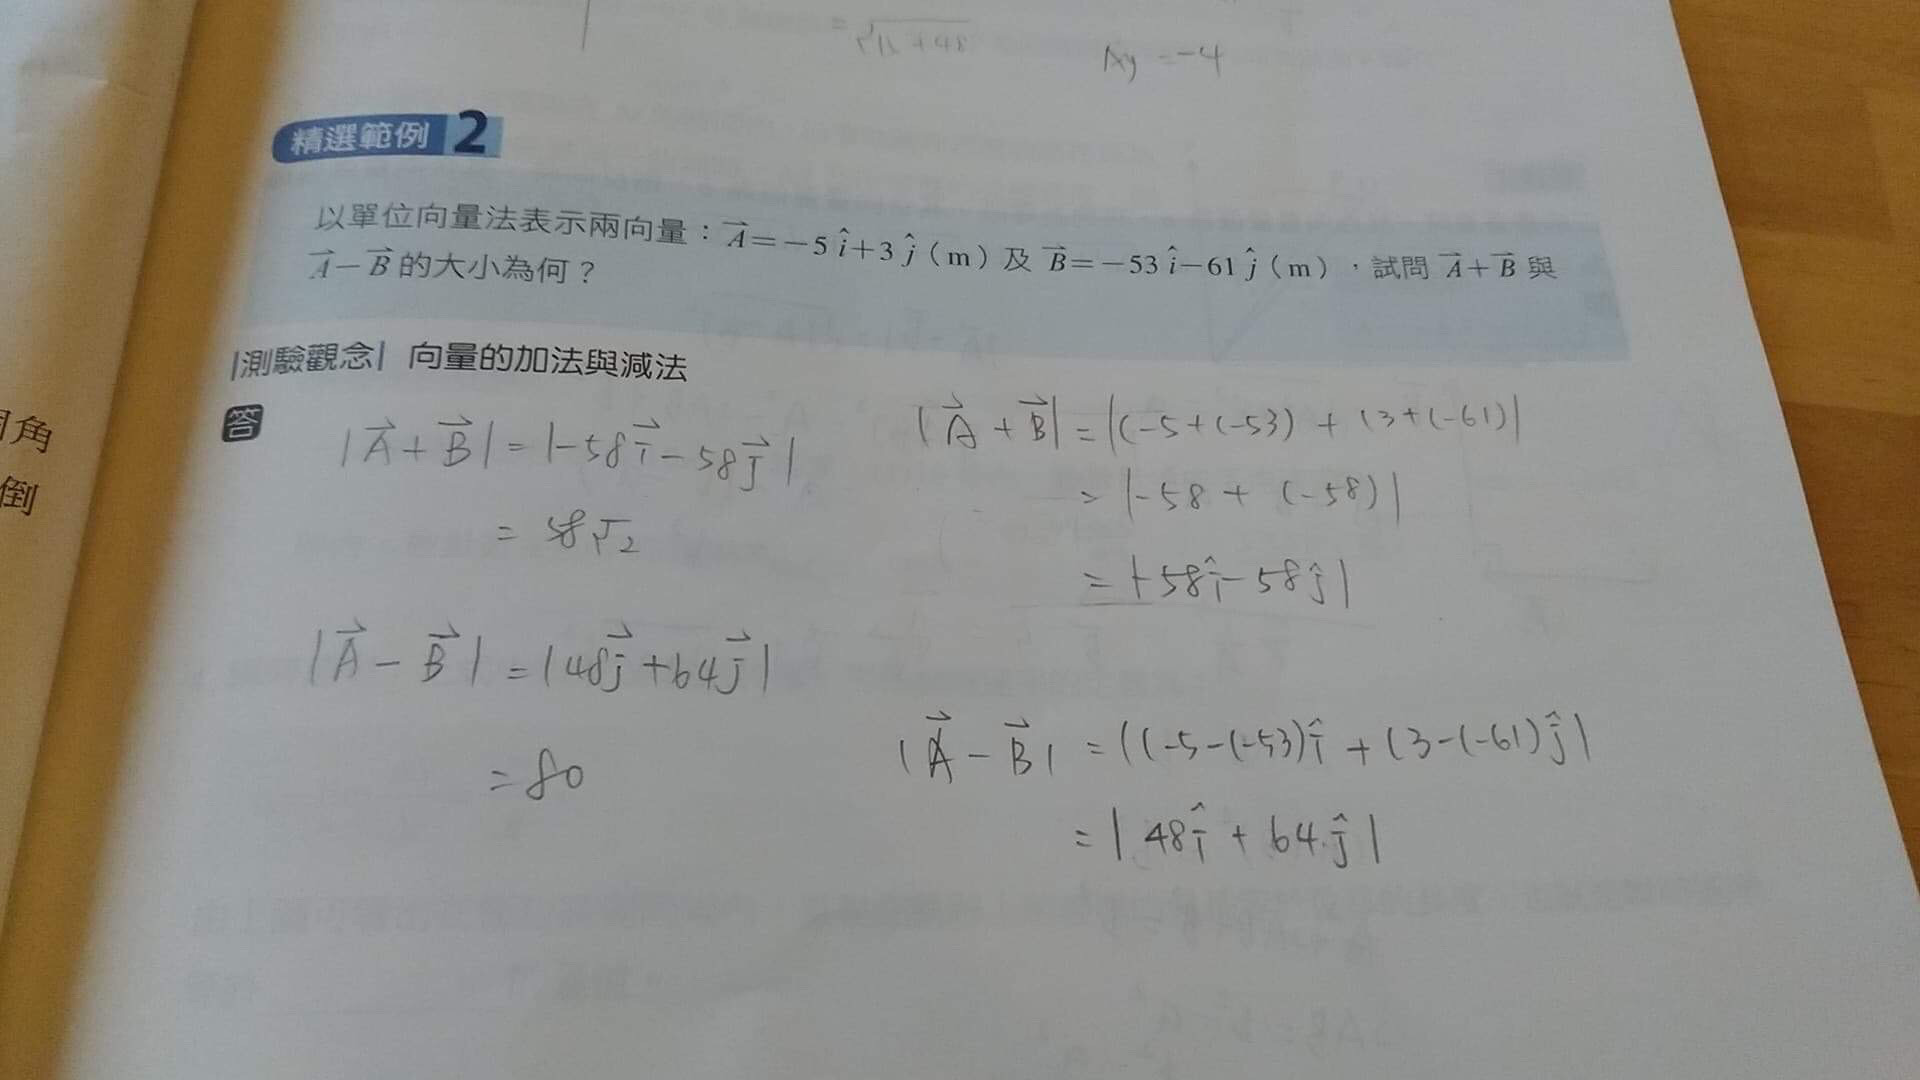 Ay = -4
精選範例 2
以單位向量法表示兩向量：A⃗=−5 î+3 ĵ（m）及 B⃗=−53 î−61 ĵ（m），試問 A⃗+B⃗ 與
A⃗−B⃗ 的大小為何？
|測驗觀念| 向量的加法與減法
答
|A⃗+B⃗| = |-58i⃗ - 58j⃗|
= 58√2
|A⃗ - B⃗| = |48j⃗ + 64j⃗|
= 80
|A⃗ + B⃗| = |(-5+(-53) + (3+(-61)|
= |-58 + (-58)|
= |-58î - 58ĵ|
|A⃗ - B⃗| = |(-5-(-53)î + (3-(-61)ĵ|
= |48î + 64ĵ|
角
倒